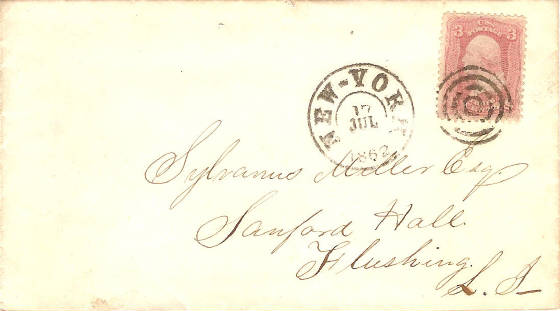 3 U.S. POSTAGE 3
NEW-YORK
17
JUL
1862
Sylvanus Miller Esq.
Sanford Hall
Flushing.
L. I